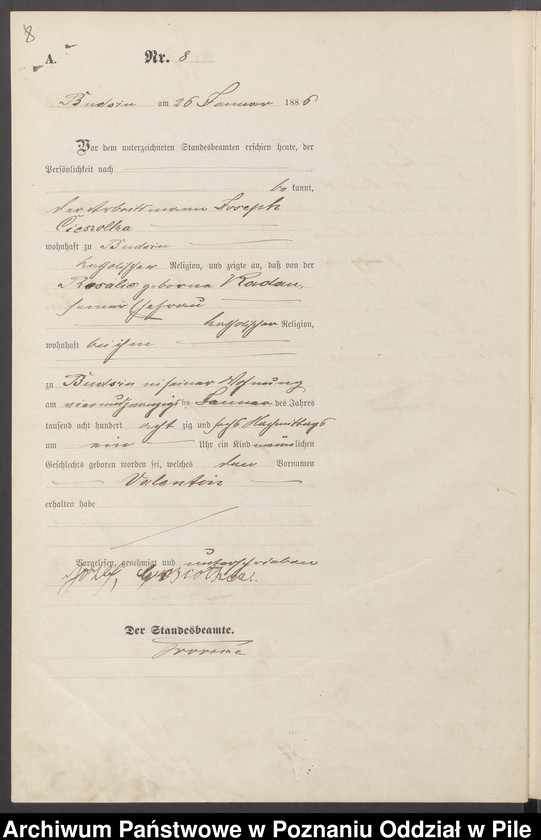 8
A. Nr. 8
Budsin am 26 Januar 1886
Vor dem unterzeichneten Standesbeamten erschien heute, der
Persönlichkeit nach
be kannt,
der Arbeitsmann Joseph
Ciesiolka
wohnhaft zu Budsin
katholischer Religion, und zeigte an, daß von der
Rosalie geborne Radau,
seiner Ehefrau
katholischer Religion,
wohnhaft bei ihm
zu Budsin in seiner Wohnung
am vierundzwanzigsten Januar des Jahres
tausend acht hundert acht zig und sechs Nachmittags
um ein Uhr ein Kind männlichen
Geschlechts geboren worden sei, welches den Vornamen
Valentin
erhalten habe
Vorgelesen, genehmigt und unterschrieben
Józef
Der Standesbeamte.
Archiwum Państwowe w Poznaniu Oddział w Pile